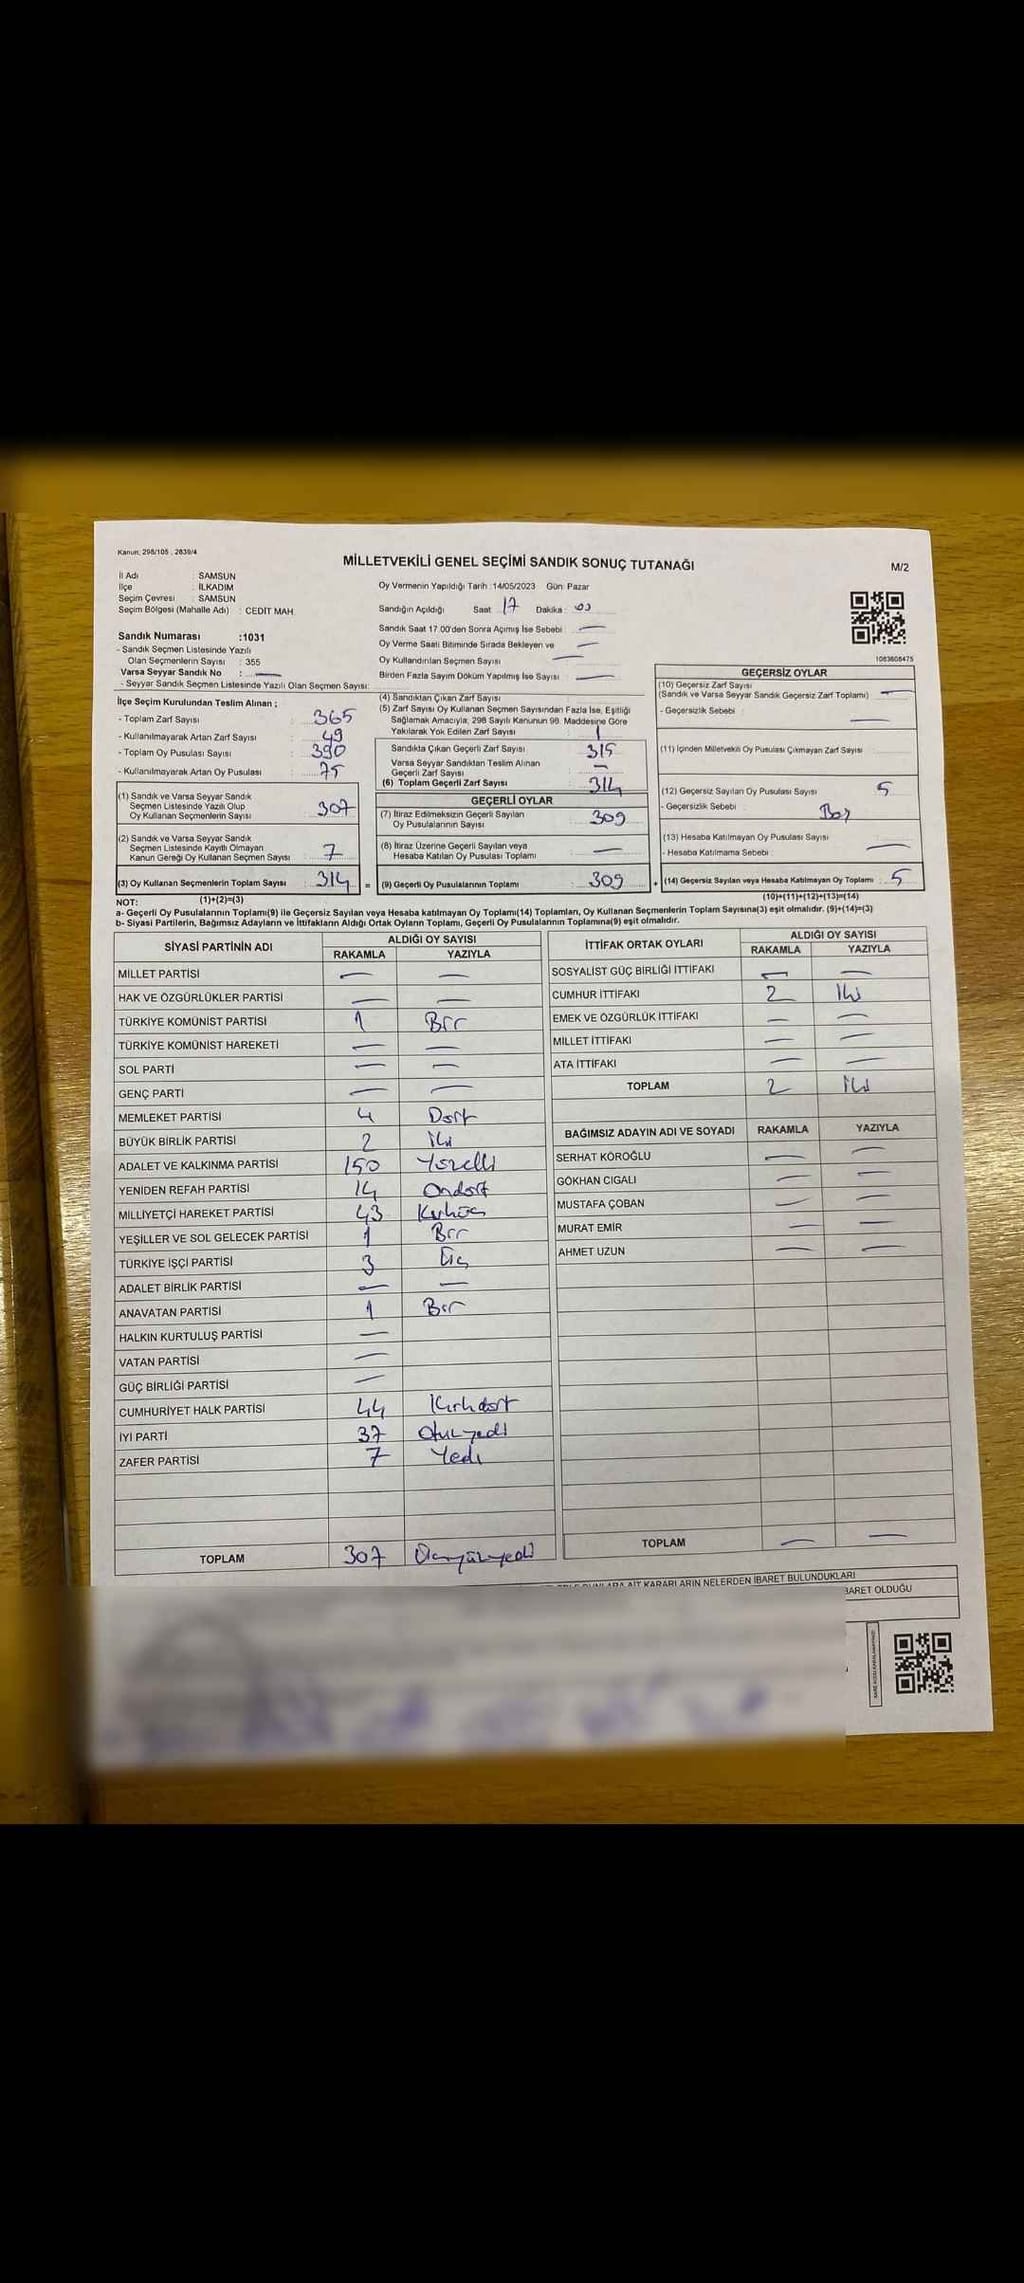 Kanun; 298/105 , 2839/4
MİLLETVEKİLİ GENEL SEÇİMİ SANDIK SONUÇ TUTANAĞI
M/2
İl Adı : SAMSUN
İlçe : İLKADIM
Seçim Çevresi : SAMSUN
Seçim Bölgesi (Mahalle Adı) : CEDİT MAH.
Oy Vermenin Yapıldığı Tarih :14/05/2023 Gün: Pazar
Sandığın Açıldığı Saat 17 Dakika : 00
Sandık Saat 17.00'den Sonra Açımış İse Sebebi : —
Oy Verme Saati Bitiminde Sırada Bekleyen ve —
Oy Kullandırılan Seçmen Sayısı —
Birden Fazla Sayım Döküm Yapılmış İse Sayısı : —
1083608475
Sandık Numarası :1031
- Sandık Seçmen Listesinde Yazılı
Olan Seçmenlerin Sayısı : 355
Varsa Seyyar Sandık No : —
- Seyyar Sandık Seçmen Listesinde Yazılı Olan Seçmen Sayısı:
İlçe Seçim Kurulundan Teslim Alınan ;
- Toplam Zarf Sayısı : 365
- Kullanılmayarak Artan Zarf Sayısı : 49
- Toplam Oy Pusulası Sayısı : 390
- Kullanılmayarak Artan Oy Pusulası : 75
(1) Sandık ve Varsa Seyyar Sandık
Seçmen Listesinde Yazılı Olup
Oy Kullanan Seçmenlerin Sayısı : 307
(2) Sandık ve Varsa Seyyar Sandık
Seçmen Listesinde Kayıtlı Olmayan
Kanun Gereği Oy Kullanan Seçmen Sayısı : 7
(3) Oy Kullanan Seçmenlerin Toplam Sayısı : 314 =
(1)+(2)=(3)
(4) Sandıktan Çıkan Zarf Sayısı
(5) Zarf Sayısı Oy Kullanan Seçmen Sayısından Fazla İse, Eşitliği
Sağlamak Amacıyla, 298 Sayılı Kanunun 98. Maddesine Göre
Yakılarak Yok Edilen Zarf Sayısı : 1
Sandıkta Çıkan Geçerli Zarf Sayısı : 315
Varsa Seyyar Sandıktan Teslim Alınan
Geçerli Zarf Sayısı : —
(6) Toplam Geçerli Zarf Sayısı : 314
GEÇERLİ OYLAR
(7) İtiraz Edilmeksizin Geçerli Sayılan
Oy Pusulalarının Sayısı : 309
(8) İtiraz Üzerine Geçerli Sayılan veya
Hesaba Katılan Oy Pusulası Toplamı : —
(9) Geçerli Oy Pusulalarının Toplamı : 309 +
GEÇERSİZ OYLAR
(10) Geçersiz Zarf Sayısı
(Sandık ve Varsa Seyyar Sandık Geçersiz Zarf Toplamı) : —
- Geçersizlik Sebebi : —
(11) İçinden Milletvekili Oy Pusulası Çıkmayan Zarf Sayısı :
(12) Geçersiz Sayılan Oy Pusulası Sayısı : 5
- Geçersizlik Sebebi : Boş
(13) Hesaba Katılmayan Oy Pusulası Sayısı :
- Hesaba Katılmama Sebebi : —
(14) Geçersiz Sayılan veya Hesaba Katılmayan Oy Toplamı : 5
(10)+(11)+(12)+(13)=(14)
NOT:
a- Geçerli Oy Pusulalarının Toplamı(9) ile Geçersiz Sayılan veya Hesaba katılmayan Oy Toplamı(14) Toplamları, Oy Kullanan Seçmenlerin Toplam Sayısına(3) eşit olmalıdır. (9)+(14)=(3)
b- Siyasi Partilerin, Bağımsız Adayların ve İttifakların Aldığı Ortak Oyların Toplamı, Geçerli Oy Pusulalarının Toplamına(9) eşit olmalıdır.
SİYASİ PARTİNİN ADI ALDIĞI OY SAYISI
RAKAMLA YAZIYLA
MİLLET PARTİSİ — —
HAK VE ÖZGÜRLÜKLER PARTİSİ — —
TÜRKİYE KOMÜNİST PARTİSİ 1 Bir
TÜRKİYE KOMÜNİST HAREKETİ — —
SOL PARTİ — —
GENÇ PARTİ — —
MEMLEKET PARTİSİ 4 Dört
BÜYÜK BİRLİK PARTİSİ 2 iki
ADALET VE KALKINMA PARTİSİ 150 Yüzelli
YENİDEN REFAH PARTİSİ 14 Ondört
MİLLİYETÇİ HAREKET PARTİSİ 43 Kırküç
YEŞİLLER VE SOL GELECEK PARTİSİ 1 Bir
TÜRKİYE İŞÇİ PARTİSİ 3 Üç
ADALET BİRLİK PARTİSİ — —
ANAVATAN PARTİSİ 1 Bir
HALKIN KURTULUŞ PARTİSİ —
VATAN PARTİSİ —
GÜÇ BİRLİĞİ PARTİSİ —
CUMHURİYET HALK PARTİSİ 44 Kırkdört
İYİ PARTİ 37 Otuzyedi
ZAFER PARTİSİ 7 Yedi
TOPLAM 307 Üçyüzyedi
İTTİFAK ORTAK OYLARI ALDIĞI OY SAYISI
RAKAMLA YAZIYLA
SOSYALİST GÜÇ BİRLİĞİ İTTİFAKI — —
CUMHUR İTTİFAKI 2 iki
EMEK VE ÖZGÜRLÜK İTTİFAKI — —
MİLLET İTTİFAKI — —
ATA İTTİFAKI — —
TOPLAM 2 iki
BAĞIMSIZ ADAYIN ADI VE SOYADI RAKAMLA YAZIYLA
SERHAT KÖROĞLU — —
GÖKHAN CIGALI — —
MUSTAFA ÇOBAN — —
MURAT EMİR — —
AHMET UZUN — —
TOPLAM — —
AİT KARARLARIN NELERDEN İBARET BULUNDUKLARI
İBARET OLDUĞU